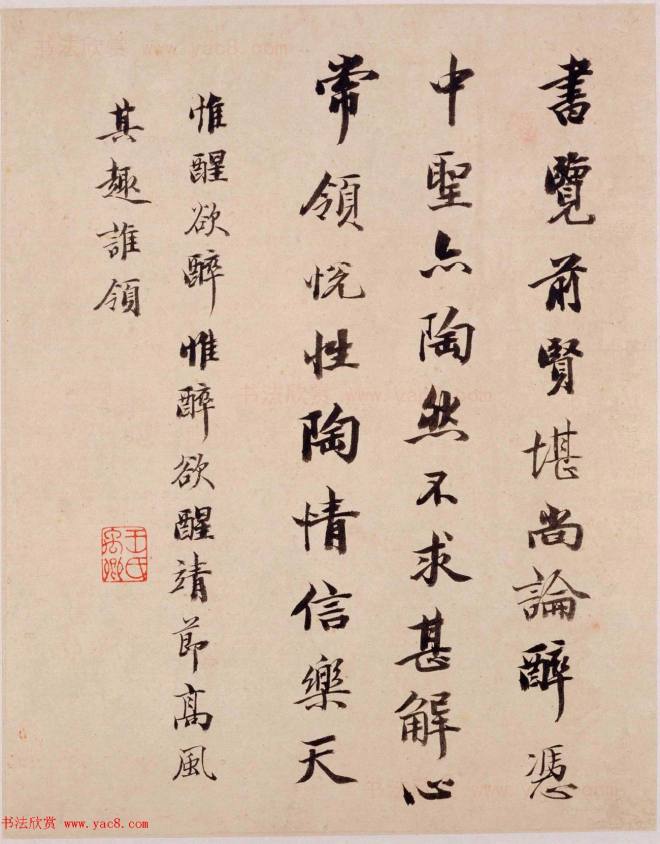 書覽前賢堪尚論醉憑
中聖亦陶然不求甚解心
常領悅性陶情信樂天
惟醒欲醉惟醉欲醒靖節高風
其趣誰領
王氏禹卿
书法欣赏 www.yac8.com
书法欣赏 www.yac8.com
书法欣赏 www.yac8.com
书法欣赏 www.yac8.com